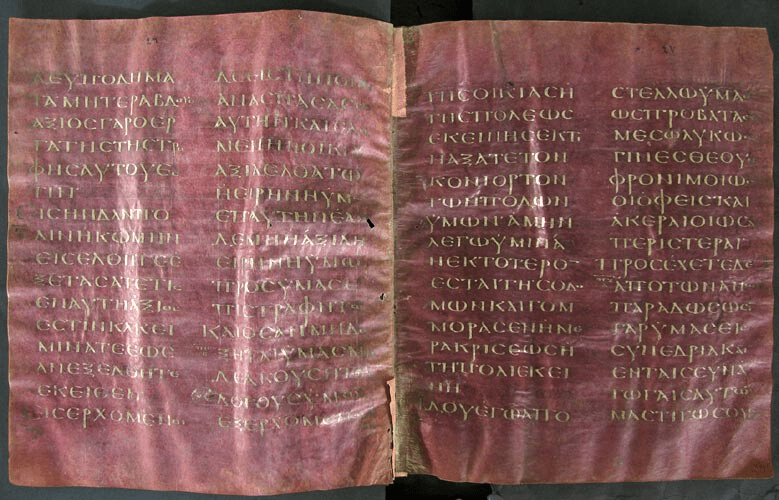 ΔΕΥΠΟΔΗΜΑ
ΤΑΜΗΤΕΡΑΒΔΟΝ
ΑΞΙΟϹΓΑΡΟΕΡ
ΓΑΤΗϹΤΗϹΤΡΟ
ΦΗϹΑΥΤΟΥΕϹ
ΤΙΝ
ΕΙϹΗΝΔΑΝΠΟ
ΛΙΝΗΚΩΜΗΝ
ΕΙϹΕΛΘΗΤΕΕ
ΞΕΤΑϹΑΤΕΤΙϹ
ΕΝΑΥΤΗΑΞΙΟϹ
ΕϹΤΙΝΚΑΚΕΙ
ΜΙΝΑΤΕΕΩϹ
ΑΝΕΞΕΛΘΗΤΕ
ΕΚΕΙΘΕΝ
ΕΙϹΕΡΧΟΜΕΝΟΙ
ΔΕΕΙϹΤΗΝΟΙΚΙ
ΑΝΑϹΠΑϹΑϹΘΕ
ΑΥΤΗΝΚΑΙΕΑ
ΜΕΝΗΗΟΙΚΙΑ
ΑΞΙΑΕΛΘΑΤΩ
ΗΕΙΡΗΝΗΥΜΩ
ΕΠΑΥΤΗΝΕΑΝ
ΔΕΜΗΗΑΞΙΑΗ
ΕΙΡΗΝΗΥΜΩ
ΠΡΟϹΥΜΑϹΕ
ΠΙϹΤΡΑΦΗΤΩ
ΚΑΙΟϹΑΝΜΗΔΕ
ΞΗΤΑΙΥΜΑϹΜΗ
ΔΕΑΚΟΥϹΗΤΟΥϹ
ΛΟΓΟΥϹΥΜΩ
ΕΞΕΡΧΟΜΕΝΟΙ
ΤΗϹΟΙΚΙΑϹΗ
ΤΗϹΠΟΛΕΩϹ
ΕΚΕΙΝΗϹΕΚΤΙ
ΝΑΞΑΤΕΤΟΝ
ΚΟΝΙΟΡΤΟΝ
ΤΩΝΠΟΔΩΝ
ΥΜΩΝΑΜΗΝ
ΛΕΓΩΥΜΙΝΑ
ΝΕΚΤΟΤΕΡΟΝ
ΕϹΤΑΙΓΗϹΟΔΟ
ΜΩΝΚΑΙΓΟΜ
ΜΟΡΑϹΕΝΗΜΕ
ΡΑΚΡΙϹΕΩϹΗ
ΤΗΠΟΛΙΕΚΕΙ
ΝΗ
ΙΔΟΥΕΓΩΑΠΟ
ϹΤΕΛΛΩΥΜΑϹ
ΩϹΠΡΟΒΑΤΑ
ΜΕϹΩΛΥΚΩ
ΓΙΝΕϹΘΕΟΥ
ΦΡΟΝΙΜΟΙΩϹ
ΟΙΟΦΕΙϹΚΑΙ
ΑΚΕΡΑΙΟΙΩϹ
ΠΕΡΙϹΤΕΡΑΙ
ΠΡΟϹΕΧΕΤΕΔΕ
ΑΠΟΤΩΝΑΝ
ΠΑΡΑΔΩϹΩϹΙ
ΓΑΡΥΜΑϹΕΙϹ
ϹΥΝΕΔΡΙΑΚΑΙ
ΕΝΤΑΙϹϹΥΝΑ
ΓΩΓΑΙϹΑΥΤΩ
ΜΑϹΤΙΓΩϹΟΥ